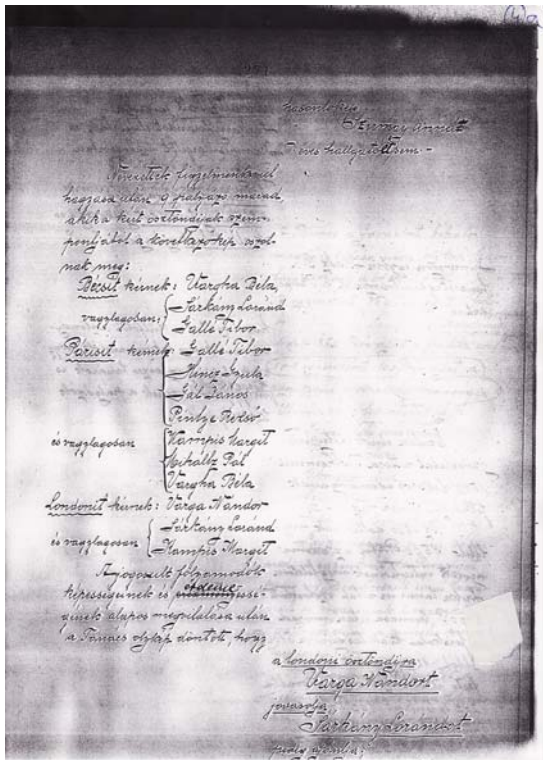 hasonlókép
éves hallgatót sem –
Nevezettek figyelmen kívül
hagyása után 9 pályázó marad
akik a kért ösztöndíjak szem-
pontjából a következőkép oszol-
nak meg:
Bécsit kérnek: Vargha Béla,
vagylagosan: Sárkány Loránd
Gallé Tibor
Párisit kérnek: Gallé Tibor
Hincz Gyula
Gál János
Pintye Rezső
és vagylagosan Kampis Margit
Miháltz Pál
Vargha Béla
Londonit kérnek: Varga Nándor
és vagylagosan Sárkány Loránd
Kampis Margit
A jogosult folyamodók
képességeinek és érdemessé-
gének alapos megvitatása után
a Tanács olykép döntött, hogy
a londoni ösztöndíjra
Varga Nándort
javasolja,
Sárkány Lorándot